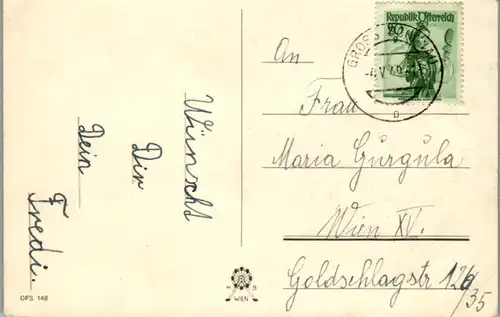 Wünscht
Dir
Dein
Fredi.
OFS 148
H B
WIEN
Republik Österreich
An
Frau
Maria Gurgula
Wien XV.
Goldschlagstr
/35